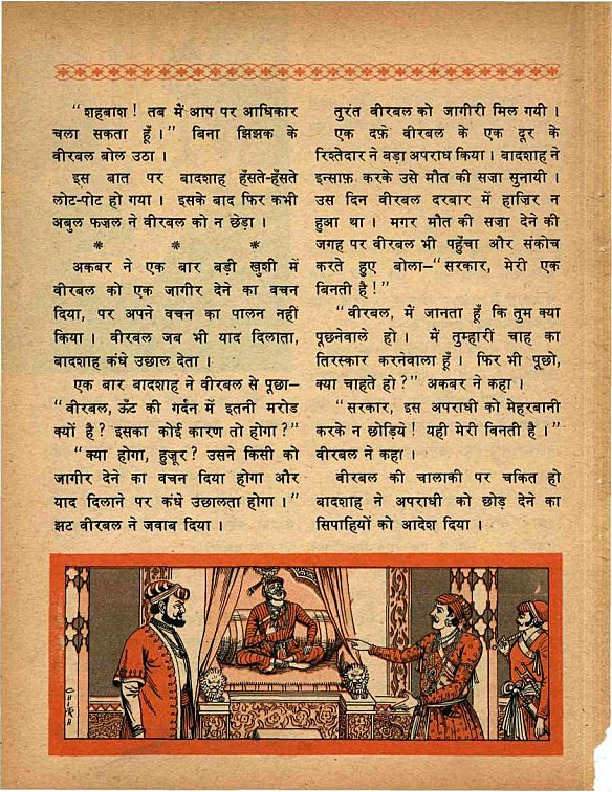 “शहबाश ! तब मैं आप पर आधिकार
चला सकता हूँ ।” बिना झिझक के
बीरबल बोल उठा ।
इस बात पर बादशाह हँसते-हँसते
लोट-पोट हो गया । इसके बाद फिर कभी
अबुल फजल ने बीरबल को न छेड़ा ।
* * *
अकबर ने एक बार बड़ी खुशी में
बीरबल को एक जागीर देने का वचन
दिया, पर अपने वचन का पालन नहीं
किया । बीरबल जब भी याद दिलाता,
बादशाह कंधे उछाल देता ।
एक बार बादशाह ने बीरबल से पूछा—
“बीरबल, ऊँट की गर्दन में इतनी मरोड
क्यों है ? इसका कोई कारण तो होगा ?”
“क्या होगा, हुजूर ? उसने किसी को
जागीर देने का वचन दिया होगा और
याद दिलाने पर कंधे उछालता होगा ।”
झट बीरबल ने जवाब दिया ।
तुरंत बीरबल को जागीरी मिल गयी ।
एक दफ़े बीरबल के एक दूर के
रिश्तेदार ने बड़ा अपराध किया । बादशाह ने
इन्साफ़ करके उसे मौत की सजा सुनायी ।
उस दिन बीरबल दरबार में हाज़िर न
हुआ था । मगर मौत की सजा देने की
जगह पर बीरबल भी पहुँचा और संकोच
करते हुए बोला—“सरकार, मेरी एक
बिनती है !”
“बीरबल, मैं जानता हूँ कि तुम क्या
पूछनेवाले हो । मैं तुम्हारी चाह का
तिरस्कार करनेवाला हूँ । फिर भी पूछो,
क्या चाहते हो ?” अकबर ने कहा ।
“सरकार, इस अपराधी को मेहरबानी
करके न छोड़िये ! यही मेरी बिनती है ।”
बीरबल ने कहा ।
बीरबल की चालाकी पर चकित हो
बादशाह ने अपराधी को छोड़ देने का
सिपाहियों को आदेश दिया ।
CHITRA